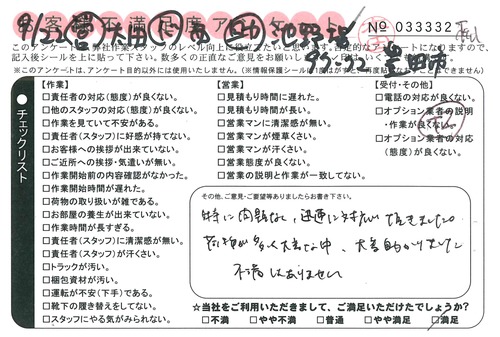 お客様不満足度アンケート
No 033332
9/22 営 大田 西 助 池野
豊田市
このアンケートは弊社作業スタッフのレベル向上に役立たせたいと思います。否定的なアンケートになりますので、
記入後シールを上に貼って下さい。数多くの正直なご意見をお願いし
※このアンケートは、アンケート目的以外には使用いたしません。(※情報保護シールは1度はがすと再度貼ることはできません)
チェックリスト
【作業】
□責任者の対応(態度)が良くない。
□他のスタッフの対応(態度)が良くない。
□作業を見ていて不安がある。
□責任者(スタッフ)に好感が持てない。
□お客様への挨拶が出来ていない。
□ご近所への挨拶・気遣いが無い。
□作業開始前の内容確認がなかった。
□作業開始時間が遅れた。
□荷物の取り扱いが雑である。
□お部屋の養生が出来ていない。
□作業時間が長すぎる。
□責任者(スタッフ)に清潔感が無い。
□責任者(スタッフ)が汗くさい。
□トラックが汚い。
□梱包資材が汚い。
□運転が不安(下手)である。
□靴下の履き替えをしてない。
□スタッフにやる気がみられない。
【営業】
□見積もり時間に遅れた。
□見積もり時間が長い。
□営業マンに清潔感が無い。
□営業マンが煙草くさい。
□営業マンが汗くさい。
□営業態度が良くない。
□営業の説明と作業が一致してない。
【受付・その他】
□電話の対応が良くない。
□オプション業者の説明
・作業が良くない。
□オプション業者の対応
(態度)が良くない。
その他、ご意見・ご要望等ありましたらお書き下さい。
特に問題なく、迅速に対応頂きました。
荷物が多く大変な中、大変助かりました
不満はありません
☆当社をご利用いただきまして、ご満足いただけたでしょうか?
□不満 □やや不満 □普通 □やや満足 □満足